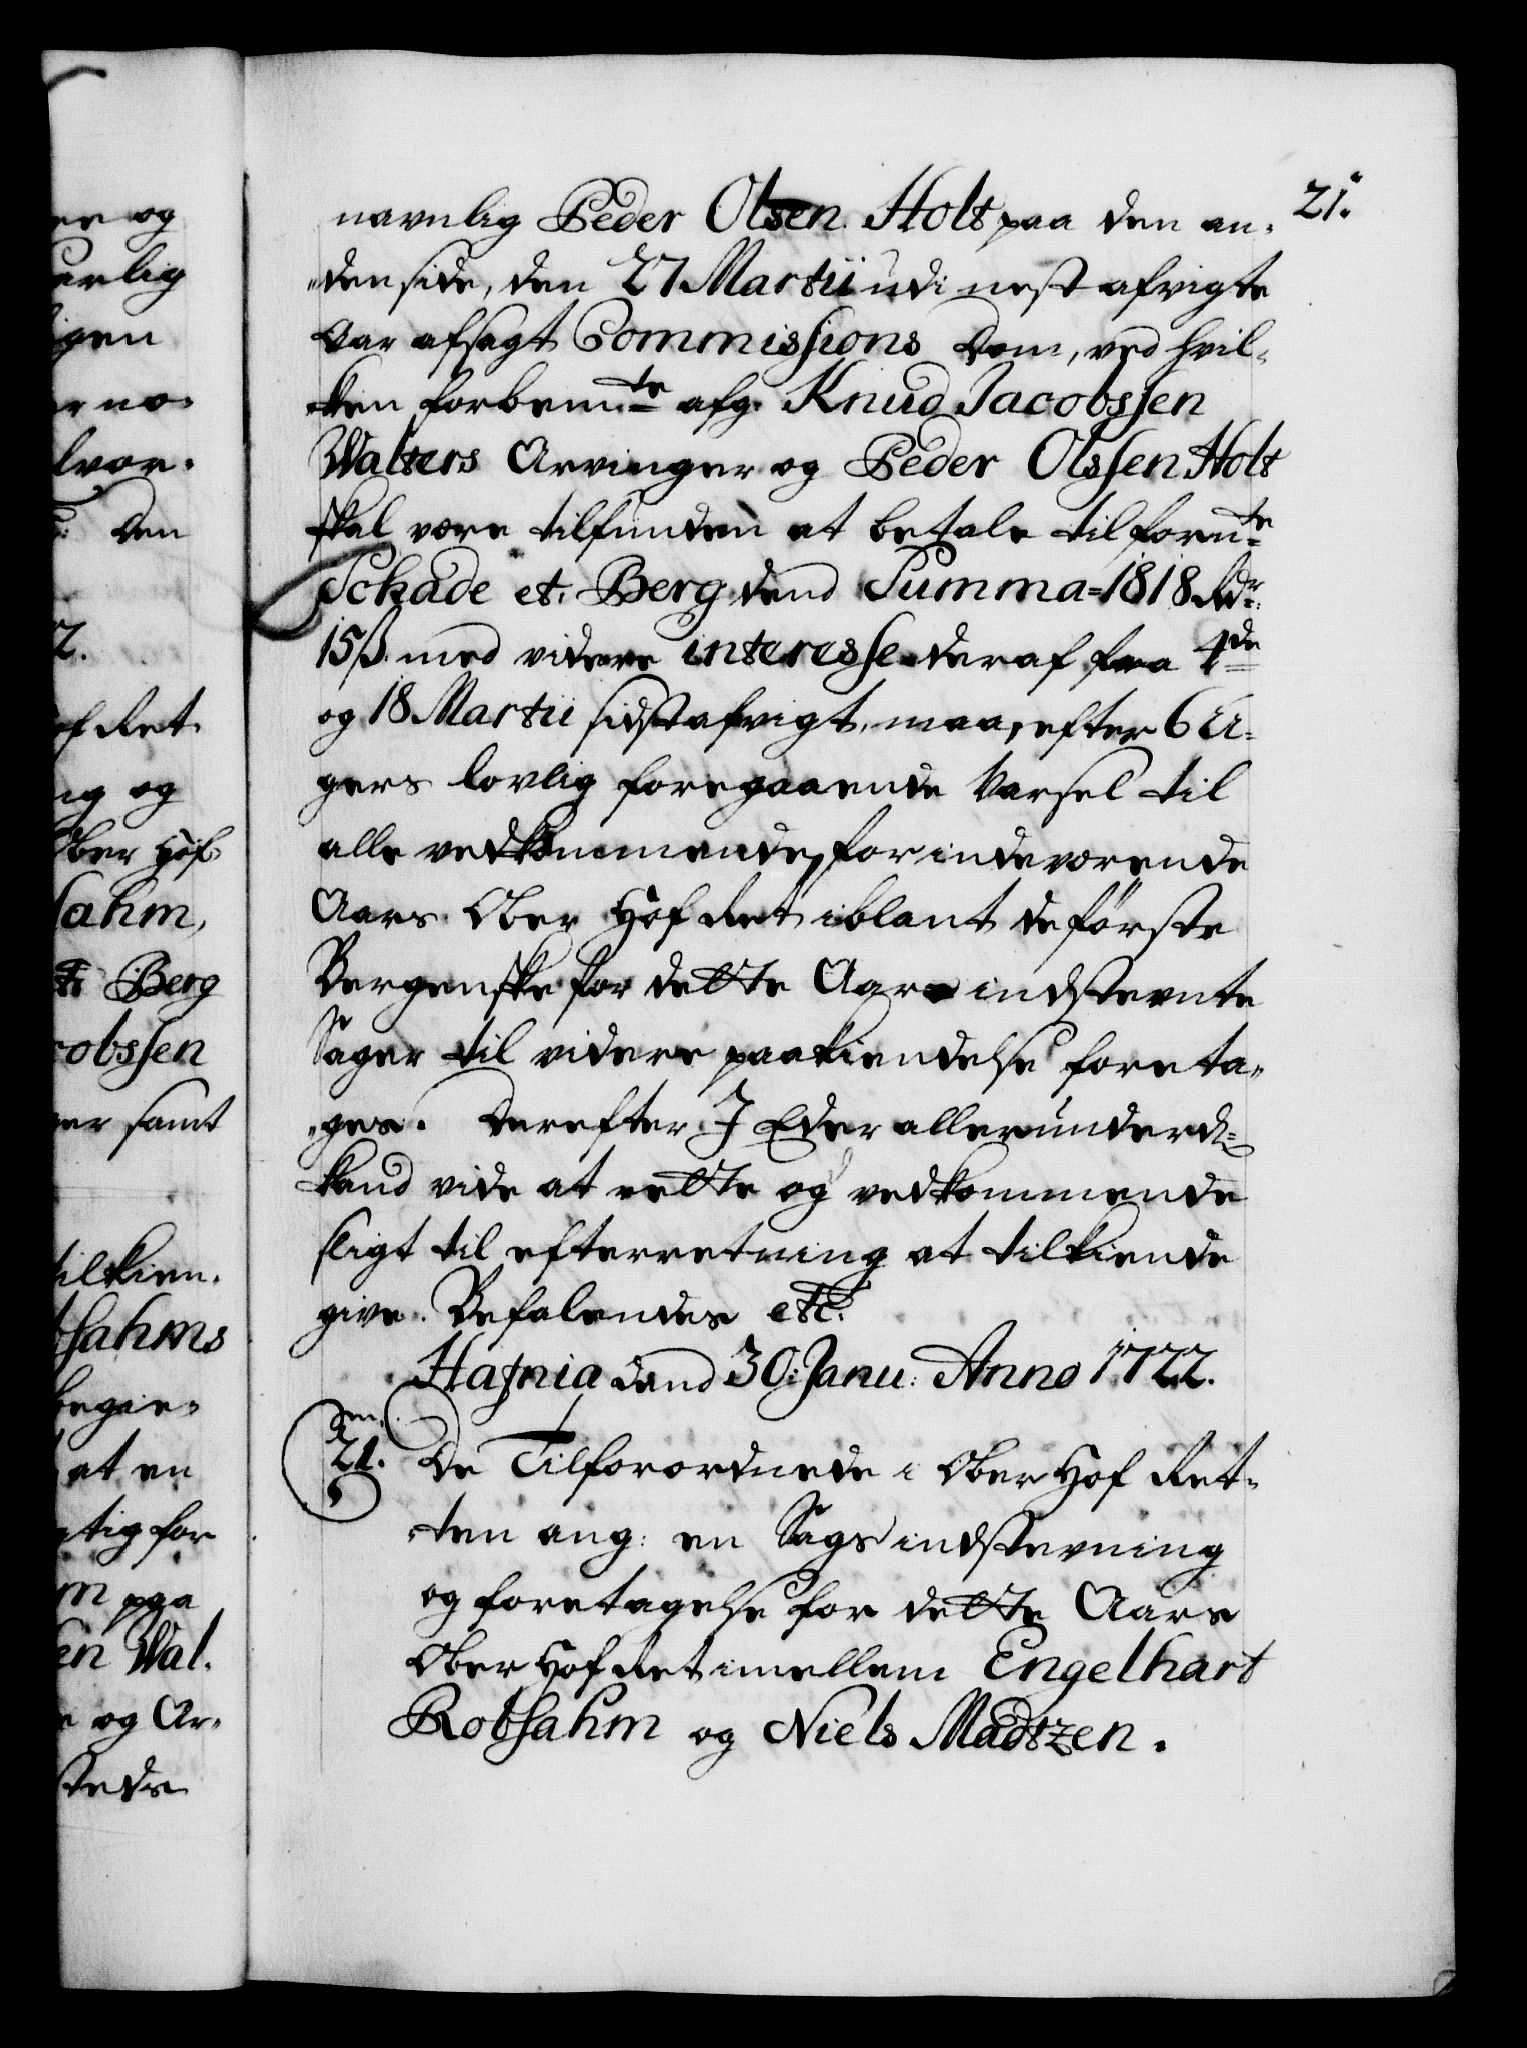 21.
navnlig Peder Olsen Holt paa den an-
den side, den 27 Martii udi nest afvigte
Aar afsagt Commissions Dom, ved hvil-
ken forbemte afg. Knud Jacobssen
Walters Arvinger og Peder Olssen Holt
skal være tilfunden at betale til fornte
Schade et Berg dend Summa=1818 Rdr.
15 ß. med videre interesse deraf fra 4de
og 18 Martii sidst afvigt, maa, efter 6 U-
gers lovlig foregaaende Varsel til
alle vedkommende, for indeværende
Aars Ober Hof Ret iblant de förste
Bergenske for dette Aar indstevnte
Sager til videre paakiendelse foreta-
ges. Derefter I Eder allerunderd:
kand vide at rette og vedkommende
sligt til efterretning at tilkiende
give. Befalendes etc.
Hafnia dend 30: Janu: Anno 1722.
21.
De Tilforordnede i Ober Hof Ret-
ten ang: en Sags indstevning
og foretagelse for dette Aars
Ober Hof Ret imellem Engelhart
Robsahm og Niels Madtzen.
er og
erlig
igen
lvor-
Den
2.
of Ret
ng og
Ober Hof
sahm,
et Berg
cobssen
ger samt
tilkien-
bsahms
begie-
at en
gtig for
m paa
en Wal-
e og Ar-
steds